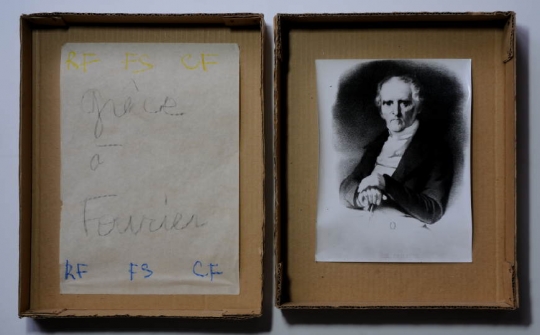 RF FS CF
grâce
à
Fourier
RF FS CF